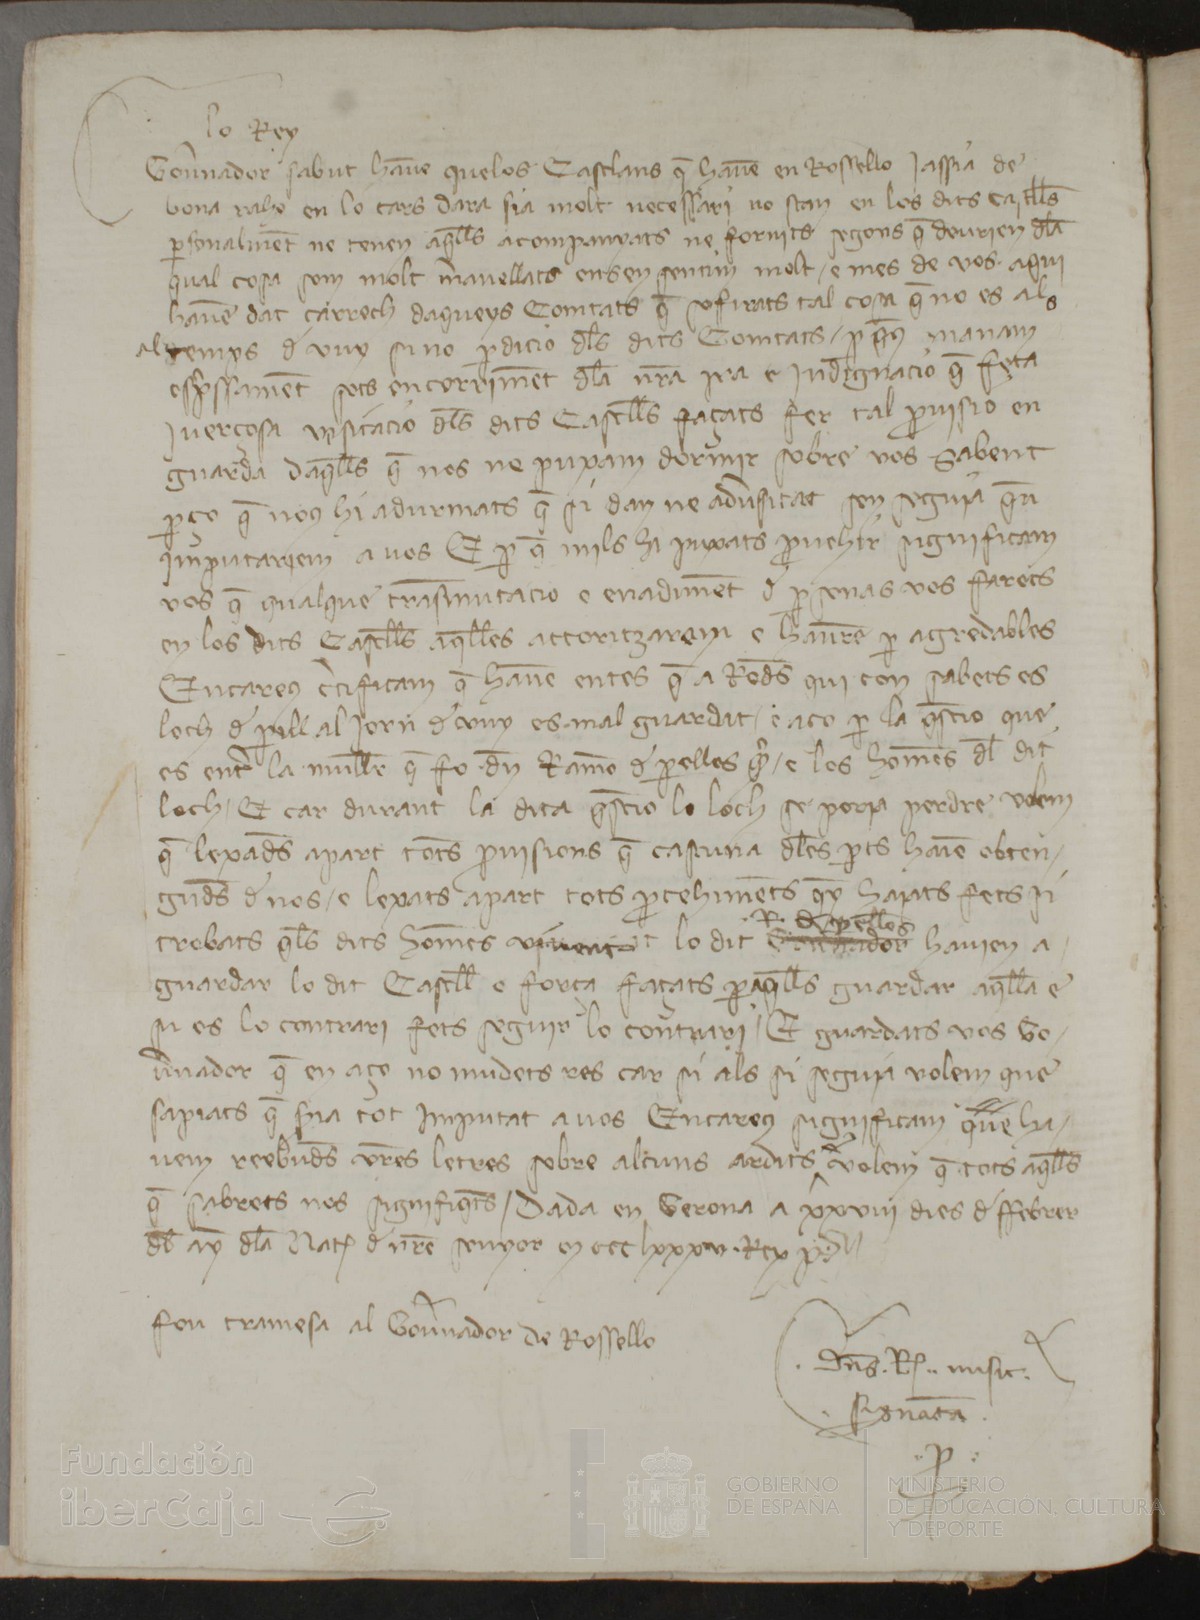 lo Rey
Gov̄nador sabut hav̄e quelos Castlans q̄ hav̄e en Rossello jassia de
bona raho en lo cars dara sia molt necessari no stan en los dits castlls
p̄sonalmēt ne tenen aq̄lls acompanyats ne fornits segons q̄ deurien dl̄a
qual cosa som molt m̄avellats ensen sentim molt / e mes de vos aqui
hav̄e dat carrech daqueys Comtats q̄ sofirats tal cosa q̄ no es als
al temps d vuy sino p̄dicio dl̄s dits Comtats / p q̄us manam
esp̄ssament sots encorrimēt dl̄a nr̄a ira e indignacio q̄ feta
visitacio dl̄s dits Castlls façats fer tal p̄visio en
guarda daq̄lls q̄ nos ne puxam dormir sobre vos Sabent
p̄ço q̄ nous hi adurmats q̄ si dan ne adv̄sitat sen seguia q̄u
imputariem a vos E p q̄ mils hi puxats p̄vehir significam
vos q̄ qualque trāsmutacio e enadimēt d p̄sonas vos farets
en los dits Castlls aq̄lles actoritzarem e haur̄e p agredables
Encareus c̄tificam q̄ hav̄e entes q̄ a Rod̄s qui con sabets es
loch d pill al jorn d vuy es mal guardat / e aço p la q̄stio que
es ent̄ la mull̄r q̄ fo dn̄ Ramō d p̄ellos / e los homēs dl̄ dit
loch / E car durant la dita q̄stio lo loch se poria perdre volem
q̄ lexad̄s apart tots p̄visions q̄ cascuna dl̄es p̄ts haiē obten/
gud̄s d nos / e lexats apart tots p̄cehimēts q̄ haiats fets si
trobats q̄ls dits homēs vivent lo dit R. d p̄ellos havien a/
guardar lo dit Castll e força façats p aq̄lls guardar aq̄lla e
si es lo contrari fets seguir lo contrari / E guardats vos Go/
v̄nador q̄ en aço no mudets res car si als si seguia volem que
sapiats q̄ sia tot imputat a vos Encareus significam que ha/
vem reebud̄s vr̄es letres sobre alcuns ardits volem q̄ tots aq̄lls
q̄ sabrets nos signifiq̄ts / Dada en Gerona a xxviii dies d ffebrer
dl̄ any dl̄a Nat d nr̄e senyor m ccc lxxxv Rex p
fou tramesa al Gov̄nador de Rossello
Dn̄s Rx misit
signata
p
Fundación
iberCaja
GOBIERNO
DE ESPAÑA
MINISTERIO
DE EDUCACIÓN, CULTURA
Y DEPORTE